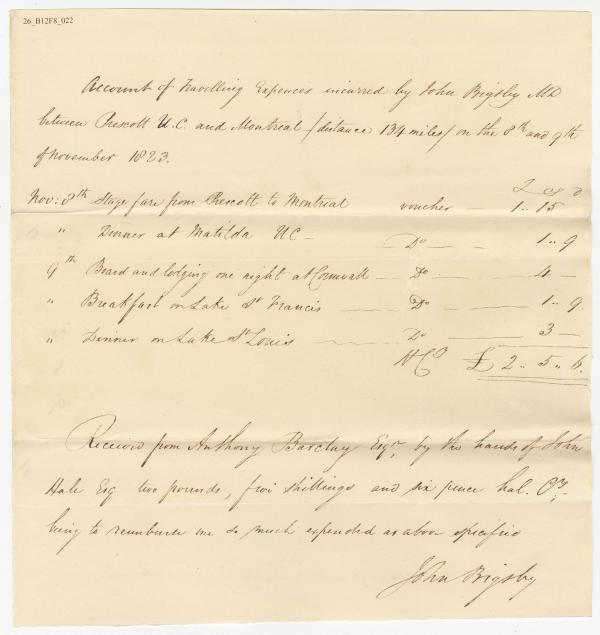 26_B12F8_022
Account of Travelling Expences incurred by John Bigsby MD
between Prescott U.C. and Montreal /distance 134 miles/ on the 8th and 9th
of November 1823.
£ S D
Nov: 8th Stage fare from Prescott to Montreal voucher — 1 .. 15
" Dinner at Matilda UC — Do — 1 .. 9
9th Board and lodging one night at Cornwall — Do — 4 —
" Breakfast on Lake St Francis — Do — 1 .. 9
" Dinner on Lake St Louis — Do — 3 —
H Cy £ 2 .. 5 .. 6
Received from Anthony Barclay Esqr, by the hands of John
Hale Esq two pounds, five shillings and six pence Hal. Cy,
being to reimburse me so much expended as above specified
John Bigsby